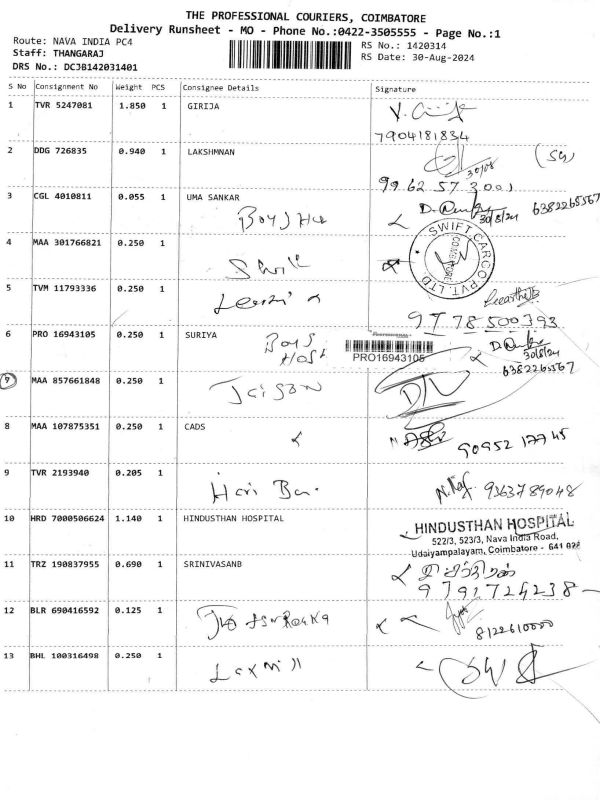 THE PROFESSIONAL COURIERS, COIMBATORE
Delivery Runsheet - MO - Phone No.:0422-3505555 - Page No.:1
Route: NAVA INDIA PC4
RS No.: 1420314
Staff: THANGARAJ
RS Date: 30-Aug-2024
DRS No.: DCJB142031401
S No Consignment No Weight PCS Consignee Details Signature
1 TVR 5247081 1.850 1 GIRIJA
7904181834
2 DDG 726835 0.940 1 LAKSHMNAN
30/08
99625 73001
3 CGL 4010811 0.055 1 UMA SANKAR
30/8/24 6382265567
SWIFT CARGO PVT. LTD
COIMBATORE
4 MAA 301766821 0.250 1
5 TVM 11793336 0.250 1
9778500393
6 PRO 16943105 0.250 1 SURIYA
Boys
Host
PRO16943105
30/8/24
6382265567
7 MAA 857661848 0.250 1
Jaison
8 MAA 107875351 0.250 1 CADS
90952 17745
9 TVR 2193940 0.205 1
Hari
9363789048
10 HRD 7000506624 1.140 1 HINDUSTHAN HOSPITAL
HINDUSTHAN HOSPITAL
522/3, 523/3, Nava India Road,
Udaiyampalayam, Coimbatore - 641 028
11 TRZ 190837955 0.690 1 SRINIVASANB
9791724238
12 BLR 690416592 0.125 1
8122610000
13 BHL 100316498 0.250 1
Laxmi